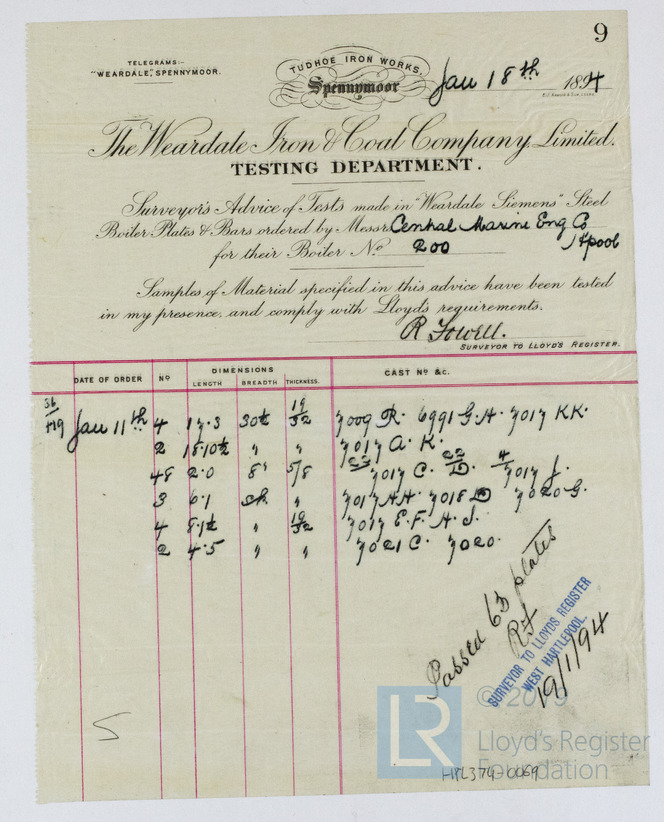 9
TELEGRAMS:-
"WEARDALE", SPENNYMOOR.
TUDHOE IRON WORKS.
Spennymoor
Jan 18th 1894
The Weardale Iron & Coal Company, Limited.
TESTING DEPARTMENT.
Surveyor's Advice of Tests made in "Weardale Siemens" Steel
Boiler Plates & Bars ordered by Messrs Central Marine Eng Co
Hpool
for their Boiler No 200
Samples of Material specified in this advice have been tested
in my presence, and comply with Lloyd's requirements.
R Fowell.
SURVEYOR TO LLOYD'S REGISTER.
DATE OF ORDER No DIMENSIONS LENGTH BREADTH THICKNESS. CAST No &c.
36/119 Jan 11th 4 17.3 30½ 19/32 7009 R. 6991 G.H. 7017 KK.
2 18.10½ " " 7017 A. K.
48 2.0 8" 5/8 22 7017 C. 22 D. 4 7017 J.
3 6.1 " 7017 AA 7018 D 7020 G.
4 8.1½ " 19/32 7017 E.F. H. J.
2 4.5 " " 7021 C. 7020.
Passed 63 plates
RF
SURVEYOR TO LLOYDS REGISTER
WEST HARTLEPOOL.
19/1/94
5
© 2019
LR
Lloyd's Register
Foundation
HPL374-0069